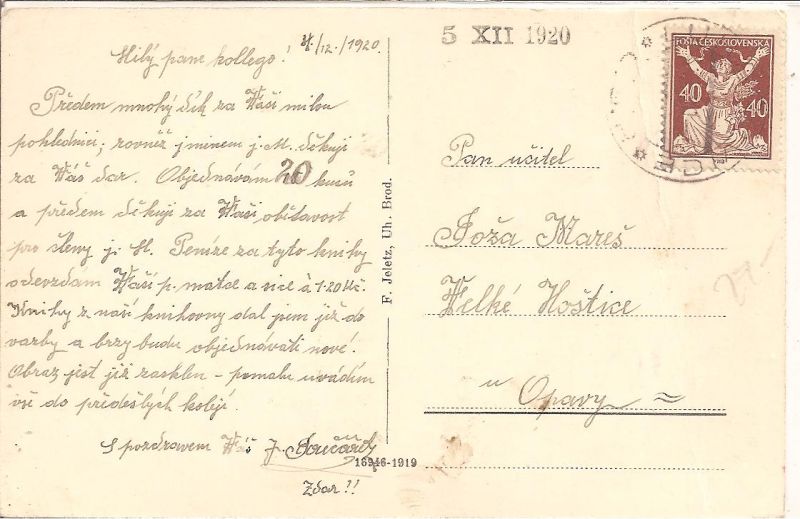 4./12./1920.
Milý pane kollego!
Předem mnohý dík za Vaši milou
pohlednici; rovněž jménem j. M. děkuji
za Váš dar. Objednávám 20 kusů
a předem děkuji za Vaši obětavost
pro členy j. M. Peníze za tyto knihy
odevzdám Vaší p. matce a sice à 1·20 Kč.
Knihy z naší knihovny dal jsem již do
vazby a brzy budu objednávati nové.
Obraz jest již zasklen – pomalu uvádím
vše do předešlých kolejí.
S pozdravem Váš J.
Zdar!!
F. Jeletz, Uh. Brod.
16946-1919
5 XII 1920
POŠTA ČESKOSLOVENSKÁ
40 40
Pan učitel
Joža Mareš
Velké Hoštice
u Opavy